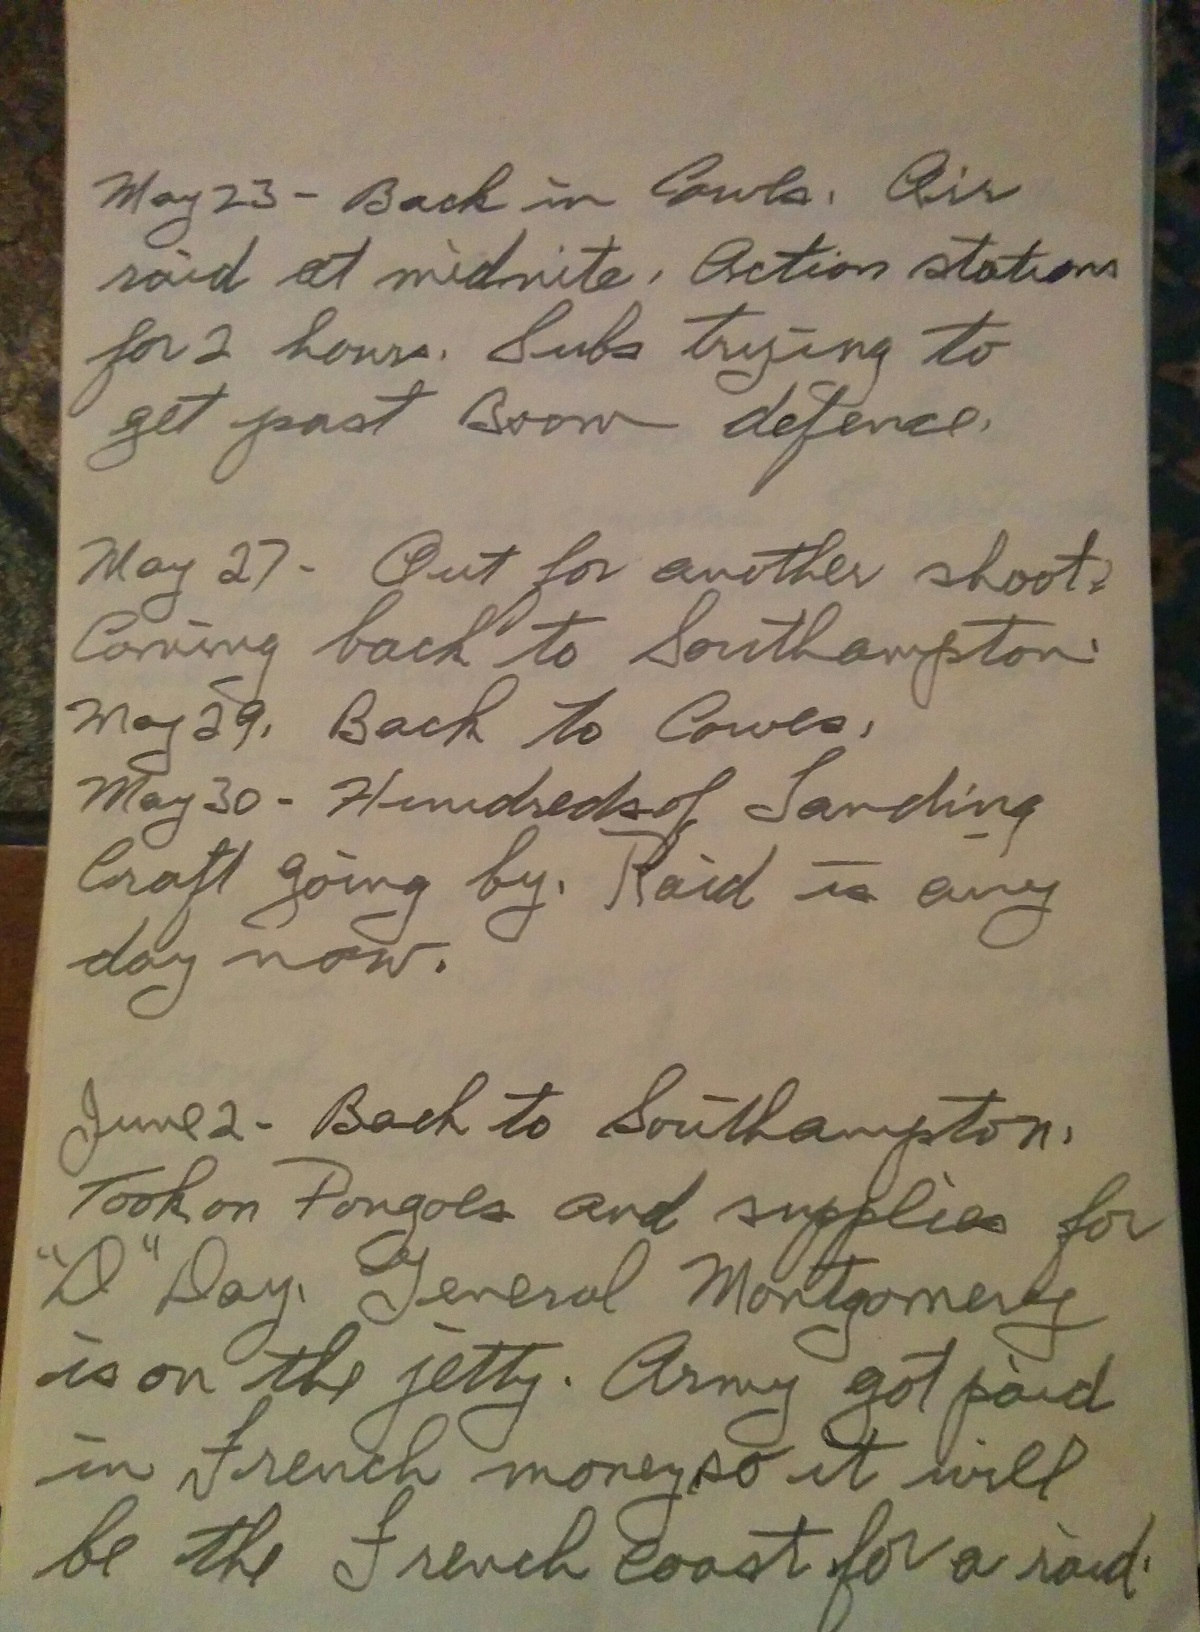 May 23 - Back in Cowls. Air
raid at midnite. Action stations
for 2 hours. Subs trying to
get past Boom defence.
May 27 - Out for another shoot.
Coming back to Southampton.
May 29. Back to Cowes.
May 30 - Hundreds of Landing
Craft going by. Raid is any
day now.
June 2 - Back to Southampton.
Took on Pongoes and supplies for
"D" Day. General Montgomery
is on the jetty. Army got paid
in French money, so it will
be the French coast for a raid.